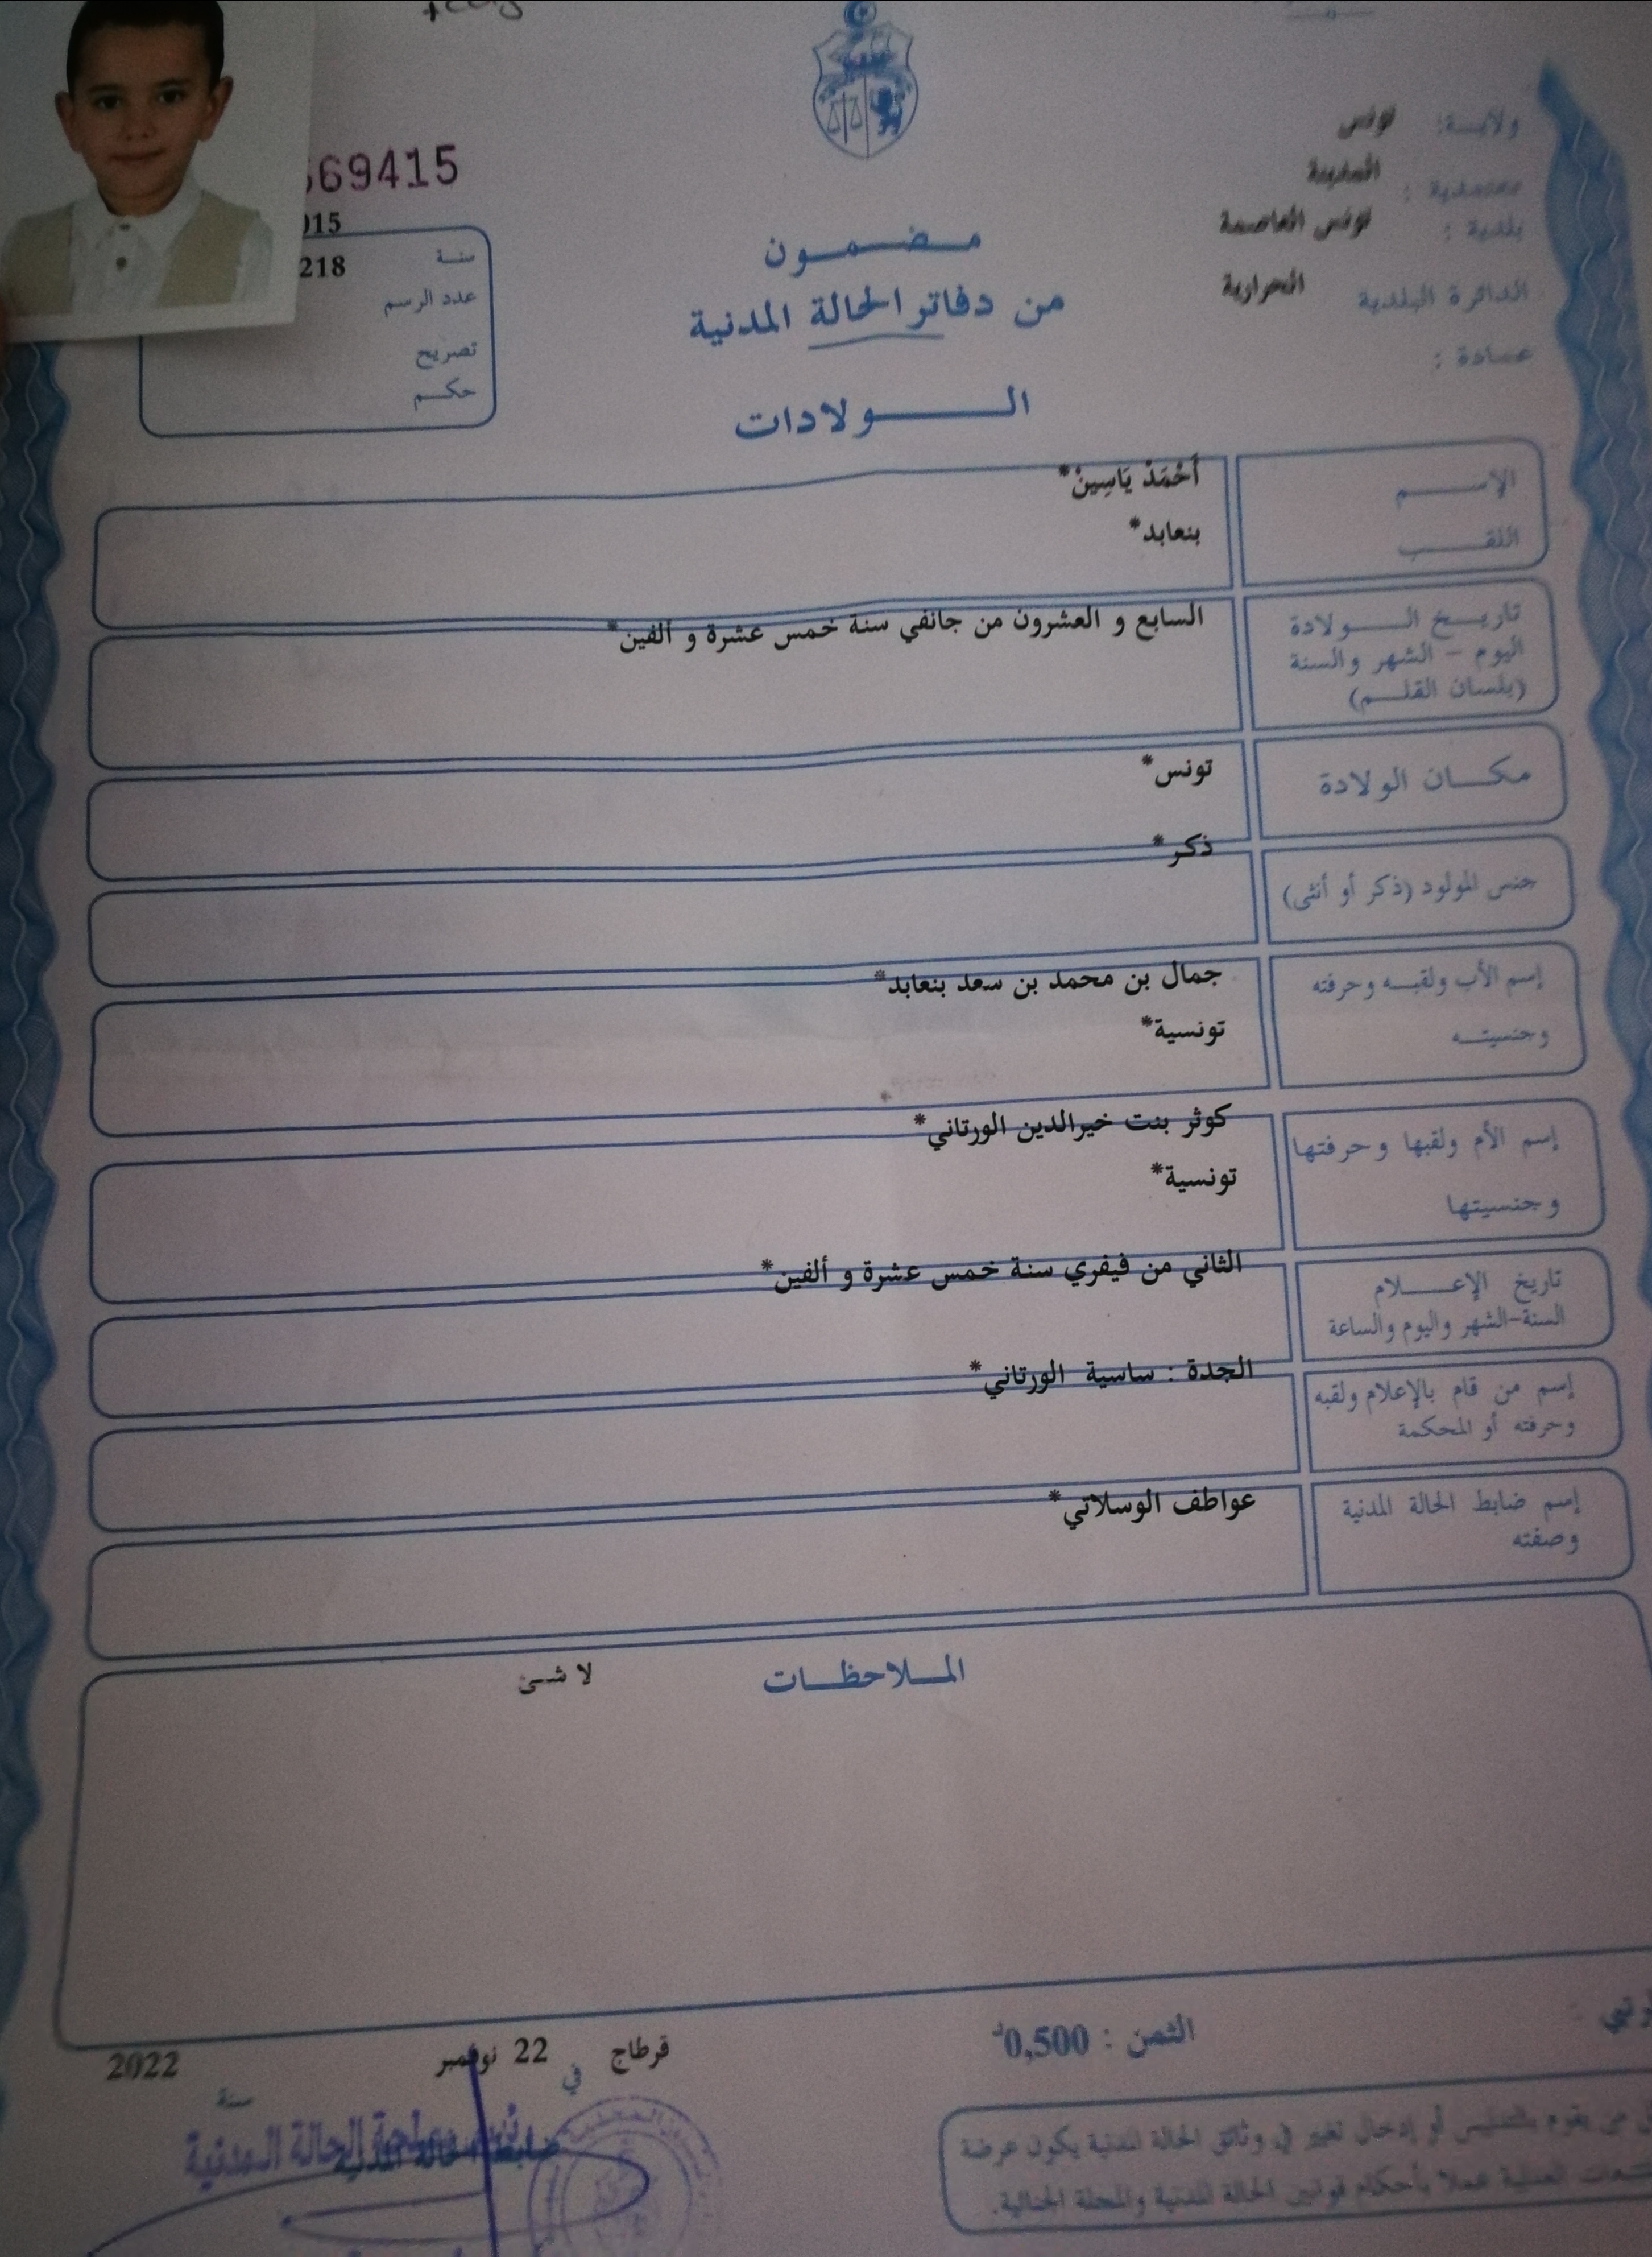 ولايــة: تونس
معتمدية : المدينة
بلدية : تونس العاصمة
الدائرة البلدية الحرارية
عمادة :
69415
015
سنة
218
عدد الرسم
تصريح
حكم
مضمون
من دفاتر الحالة المدنية
الولادات
الإسم أَحْمَدْ يَاسِينْ*
اللقب بنعابد*
تاريخ الولادة السابع و العشرون من جانفي سنة خمس عشرة و ألفين*
اليوم - الشهر والسنة
(بلسان القلم)
مكان الولادة تونس*
جنس المولود (ذكر أو أنثى) ذكر*
إسم الأب ولقبه وحرفته جمال بن محمد بن سعد بنعابد*
وجنسيته تونسية*
إسم الأم ولقبها وحرفتها كوثر بنت خيرالدين الورتاني*
وجنسيتها تونسية*
تاريخ الإعلام الثاني من فيفري سنة خمس عشرة و ألفين*
السنة-الشهر واليوم والساعة
إسم من قام بالإعلام ولقبه الجدة : ساسية الورتاني*
وحرفته أو المحكمة
إسم ضابط الحالة المدنية عواطف الوسلاتي*
وصفته
الملاحظات لا شئ
الثمن : 0,500د
قرطاج في 22 نوفمبر سنة 2022
ضابط الحالة المدنية
رئيس مصلحة الحالة المدنية
من يقوم بالتدليس أو إدخال تغيير في وثائق الحالة المدنية يكون عرضة
العدلية عملا بأحكام قوانين الحالة المدنية والمجلة الجنائية.